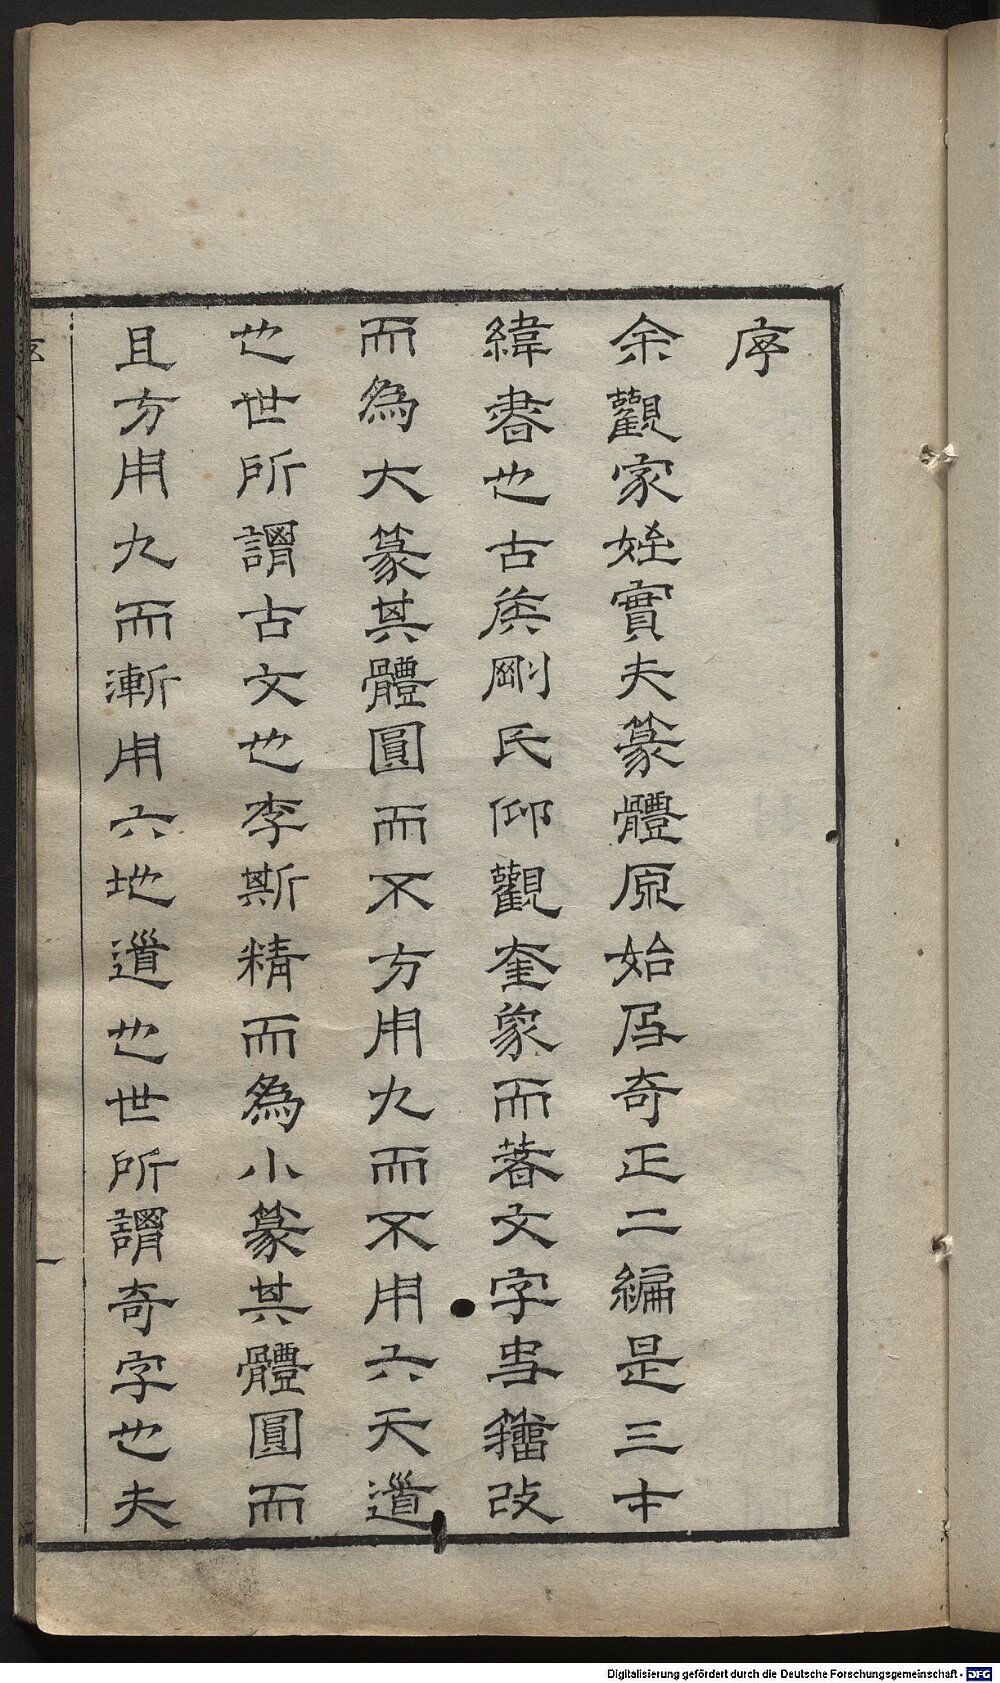 序
余觀家姪實夫篆體原始及奇正二編是三才
緯書也古矦剛氏仰觀奎象而著文字史籒改
而為大篆其體圓而不方用九而不用六天道
也世所謂古文也李斯精而為小篆其體圓而
且方用九而漸用六地道也世所謂奇字也夫
序
一
Digitalisierung gefördert durch die Deutsche Forschungsgemeinschaft - DFG